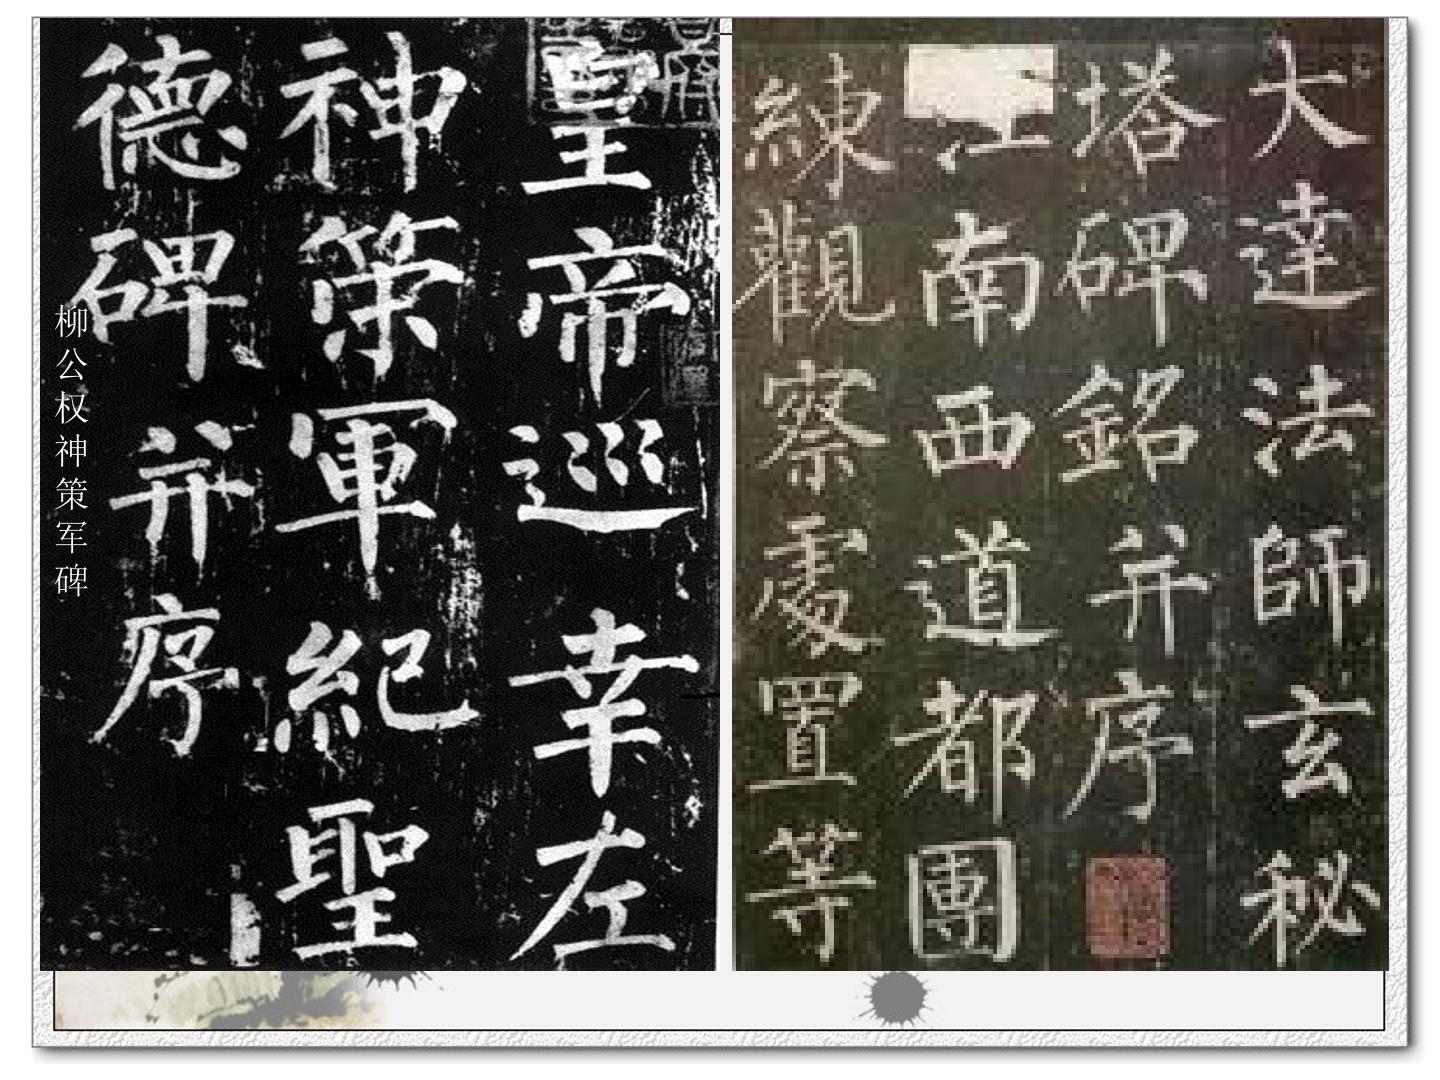 皇帝巡幸左
神策軍紀聖
德碑并序
柳公权神策军碑
大達法師玄秘
塔碑銘并序
江南西道都團
練觀察處置等